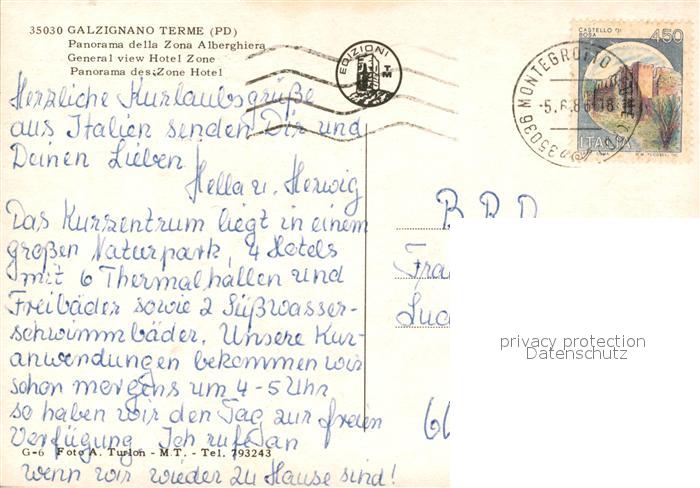 35030 GALZIGNANO TERME (PD)
Panorama della Zona Alberghiera
General view Hotel Zone
Panorama des Zone Hotel
EDIZIONI
TM
CASTELLO DI
BOSA
450
ITALIA
35036 MONTEGROTTO
-5.6.86-18
Herzliche Kurlaubsgrüße
aus Italien senden Dir und
Deinen Lieben
Hella u. Herwig
Das Kurzentrum liegt in einem
großen Naturpark, 4 Hotels
mit 6 Thermalhallen und
Freibäder sowie 2 Süßwasser-
schwimmbäder. Unsere Kur-
anwendungen bekommen wir
schon morgens um 4-5 Uhr
so haben wir den Tag zur freien
Verfügung. Ich rufe an
wenn wir wieder zu Hause sind!
G-6 Foto A. Turlon - M.T. - Tel. 793243
BRD
Fra
Lud
66
privacy protection
Datenschutz